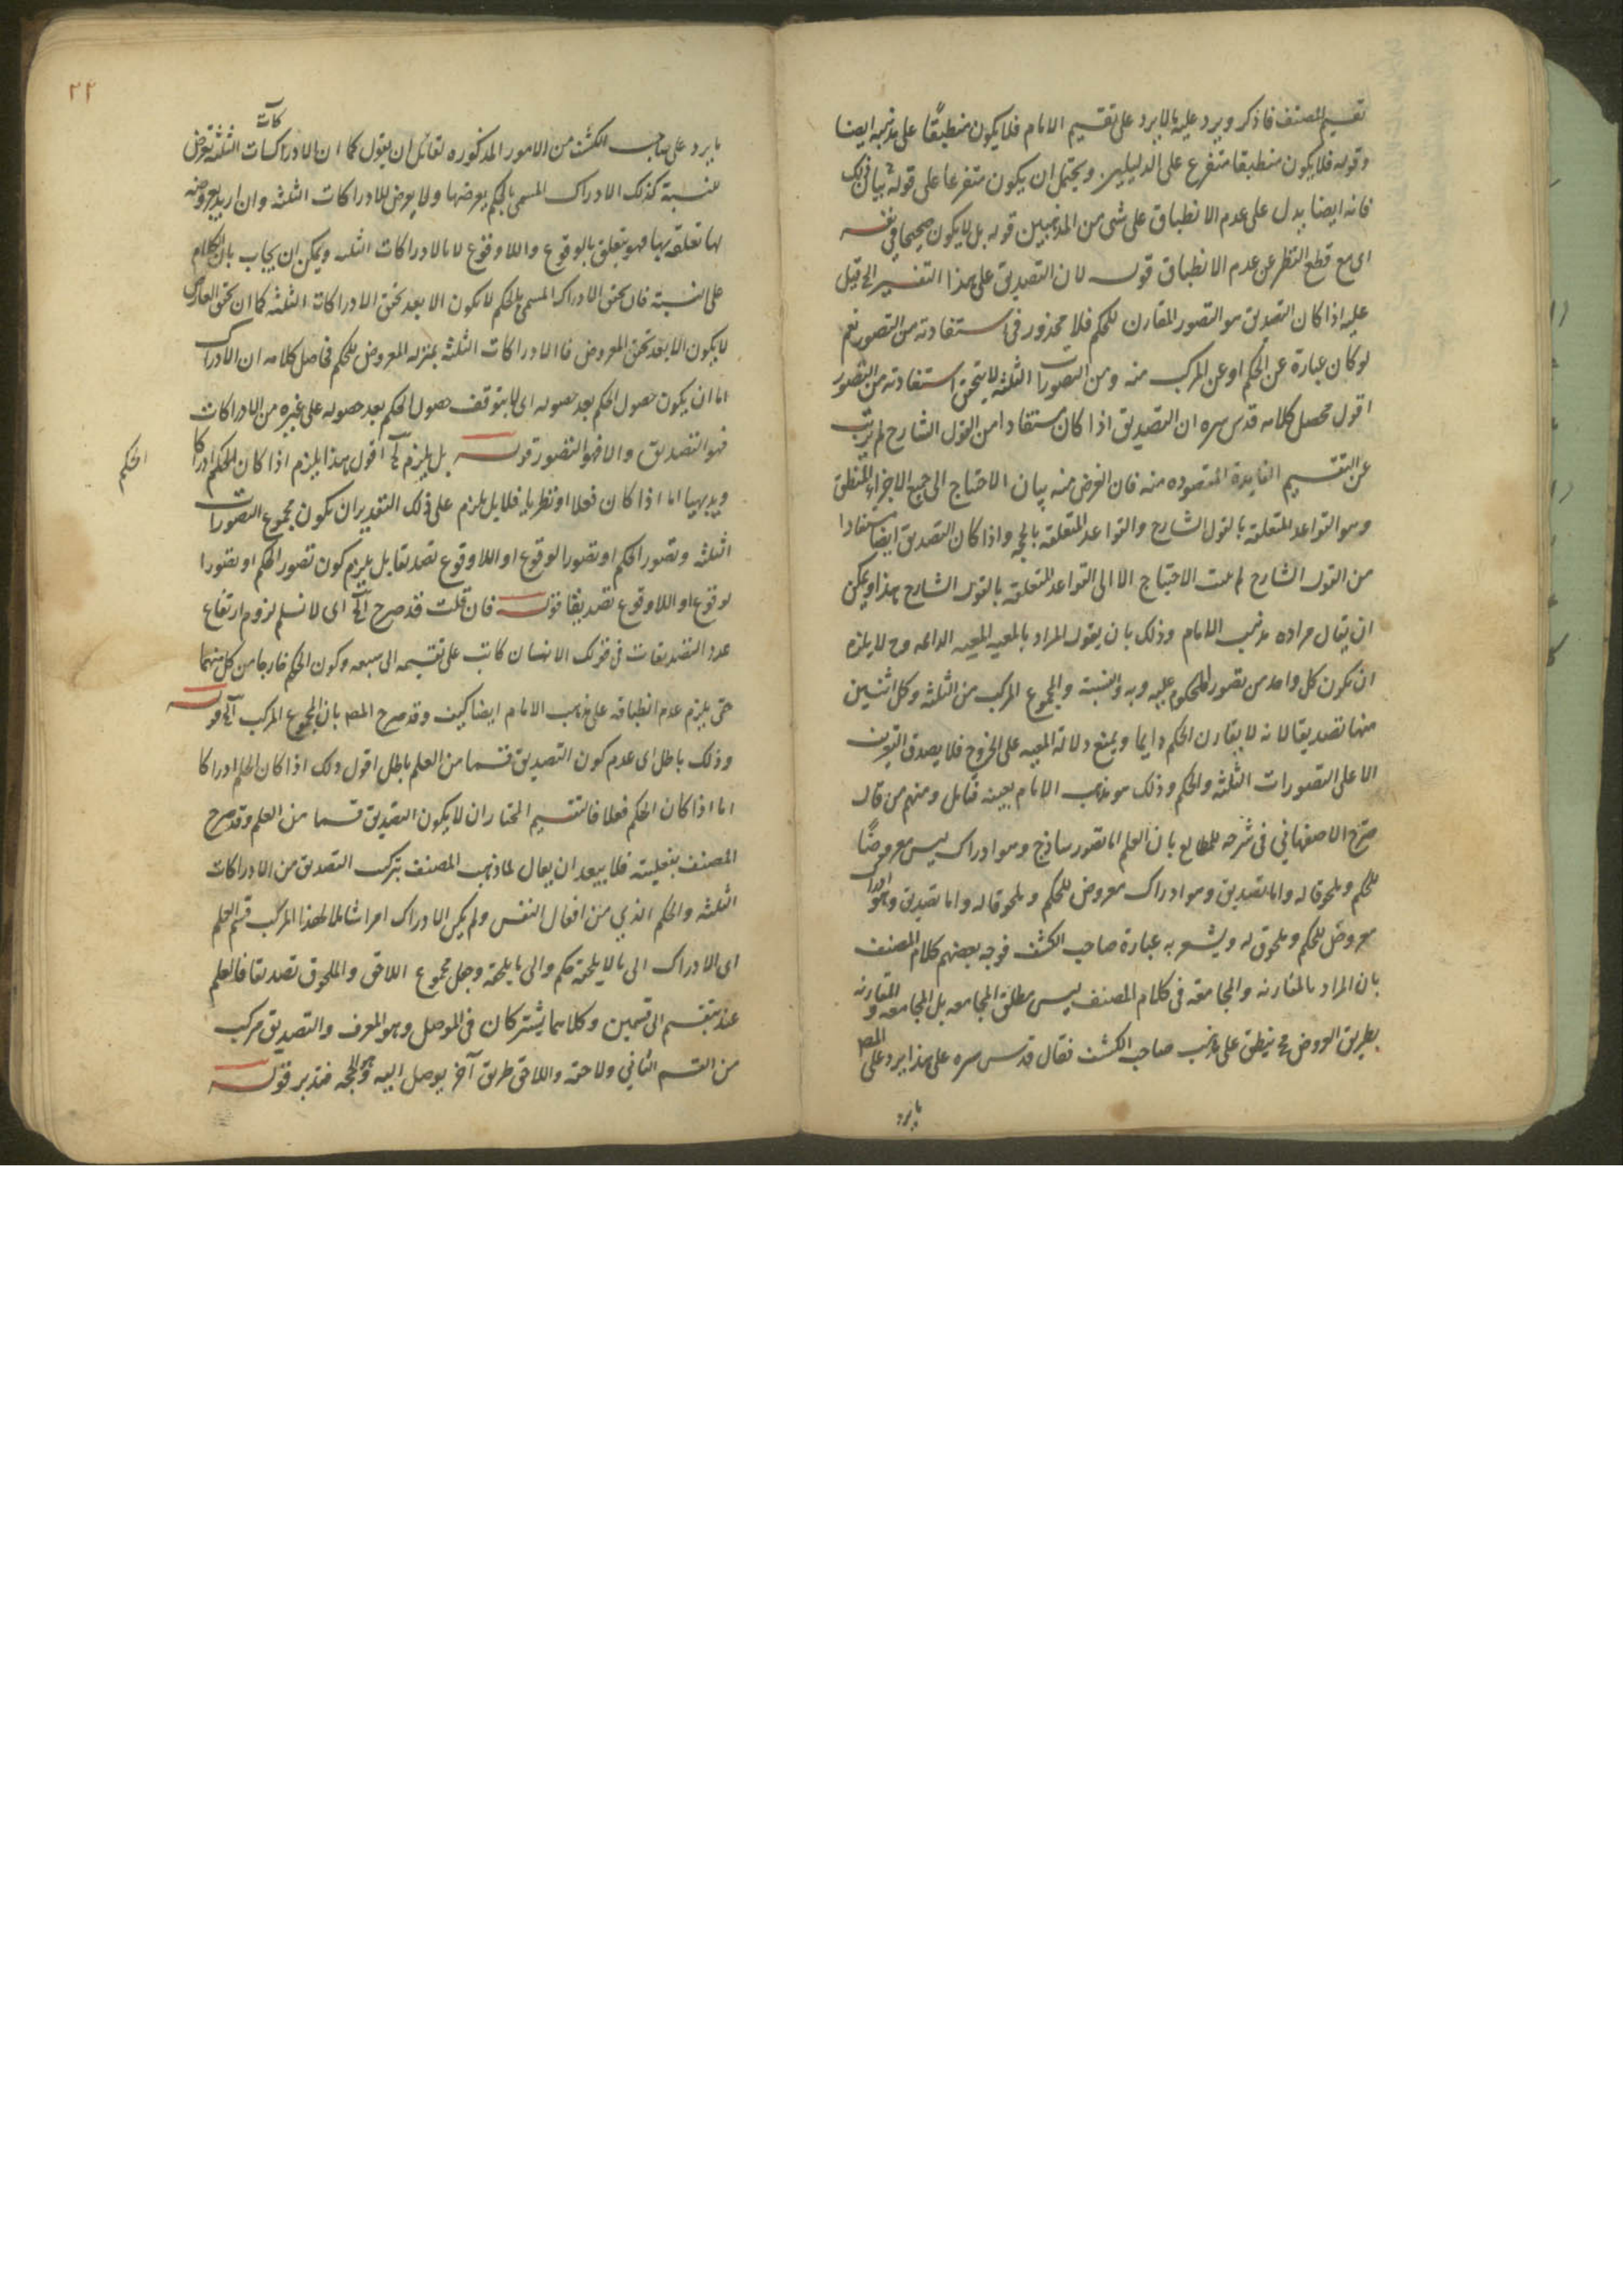 تقسيم المصنف فاذكر ويرد عليه ما لا يرد على تقسيم الامام فلا يكون منطبقًا على مذهبه ايضا
وقوله فلا يكون منطبقا متفرع على الدليلين ويحتمل ان يكون متفرعا على قوله بيان ذلك
فانه ايضا يدل على عدم الانطباق على شى من المذهبين قوله بل لا يكون صحيحا فى نفسه
اى مع قطع النظر عن عدم الانطباق قوله لان التصديق على هذا التفسير الخ قيل
عليه اذا كان التصديق هو التصور المقارن للحكم فلا محذور فى استفادته من التصور نعم
لو كان عبارة عن الحكم او عن المركب منه ومن التصورات الثلثه لا يتحقق استفادته من التصور
اقول محصل كلامه قدس سره ان التصديق اذا كان مستفادا من القول الشارح لم يترتب
عن التقسيم الفايدة المقصوده منه فان الغرض منه بيان الاحتياج الى جميع الاجزاء للمنطق
وهو القواعد المتعلقه بالقول الشارح والقواعد المتعلقه بالحجه واذا كان التصديق ايضا مستفادا
من القول الشارح لم يثبت الاحتياج الا الى القواعد المتعلقه بالقول الشارح هذا ويمكن
ان يقال مراده مذهب الامام وذلك بان يقول المراد بالمعيه المعيه الدائمه وح لا يلزم
ان يكون كل واحد من تصور المحكوم عليه وبه والنسبة والمجموع المركب من الثلثه وكل اثنين
منها تصديقا لانه لا يقارن الحكم دايما ويمنع دلالة المعيه على الخروج فلا يصدق التعريف
الا على التصورات الثلثه والحكم وذلك هو مذهب الامام بعينه فتامل ومنهم من قال
صرّح الاصفهاني فى شرحه للمطالع بان العلم اما تصور ساذج وهو ادراك ليس معروضًا
للحكم وملحوقا له واما تصديق وهو ادراك معروض للحكم وملحوقا له واما تصديق وهو ادراك
معروض للحكم وملحوق له ويشعر به عبارة صاحب الكشف فوجه بعضهم كلام المصنف
بان المراد بالمقارنه والمجامعه فى كلام المصنف ليس مطلق المجامعه بل المجامعه والمقارنه
بطريق العروض فح ينطبق على مذهب صاحب الكشف فقال قدس سره على هذا يرد على المص
ما يرد
٢٢
ما يرد على صاحب الكشف من الامور المذكوره لقائل ان يقول كما ان الادراكات الثلثه تعرض
للنسبة كذلك الادراك المسمى بالحكم يعرضها ولا يعرض للادراكات الثلثه وان اريد بعروضه
لها تعلقه بها فهو يتعلق بالوقوع واللاوقوع لا بالادراكات الثلثه ويمكن ان يجاب بان الكلام
على التشبيه فان تحقق الادراك المسمى بالحكم لا يكون الا بعد تحقق الادراكات الثلثه كما ان تحقق العارض
لا يكون الا بعد تحقق المعروض فالادراكات الثلثه بمنزله المعروض للحكم فحاصل كلامه ان الادراك
اما ان يكون حصول الحكم بعد حصوله اى لا يتوقف حصول الحكم بعد حصوله على غيره من الادراكات
فهو التصديق والا فهو التصور قوله بل يلزم الخ اقول هذا يلزم اذا كان الحكم ادراكا
الحكم
وبديهيا اما اذا كان فعلا او نظريا فلا بل يلزم على ذلك التقدير ان يكون مجموع التصورات
الثلثه وتصور الحكم او تصور الوقوع او اللاوقوع تصديقا بل يلزم كون تصور الحكم او تصور
لوقوع او اللاوقوع تصديقا قوله فان قلت قد صرح الخ اى لا نسلم لزوم ارتفاع
عدد التصديقات فى قولك الانسان كاتب على تقسيمه الى سبعه وكون الحكم خارجا من كل منهما
حتى يلزم عدم انطباقه على مذهب الامام ايضا كيف وقد صرح المص بان المجموع المركب الخ قوله
وذلك باطل اى عدم كون التصديق قسما من العلم باطل اقول ذلك اذا كان الحكم ادراكا
اما اذا كان الحكم فعلا فالتقسيم المختار ان لا يكون التصديق قسما من العلم وقد صرح
المصنف بفعليته فلا يبعد ان يقال لما ذهب المصنف بتركب التصديق من الادراكات
الثلثه والحكم الذي من افعال النفس ولم يكن الادراك امرا شاملا لهذا المركب قسّم العلم
اى الادراك الى ما لا يلحقه حكم والى ما يلحقه وجعل مجموع اللاحق والملحوق تصديقا فالعلم
عنده ينقسم الى قسمين وكلاهما يشتركان فى الموصل وهو المعرف والتصديق مركب
من القسم الثاني ولاحقه واللاحق طريق آخر يوصل اليه وهو الحجه فتدبر قوله